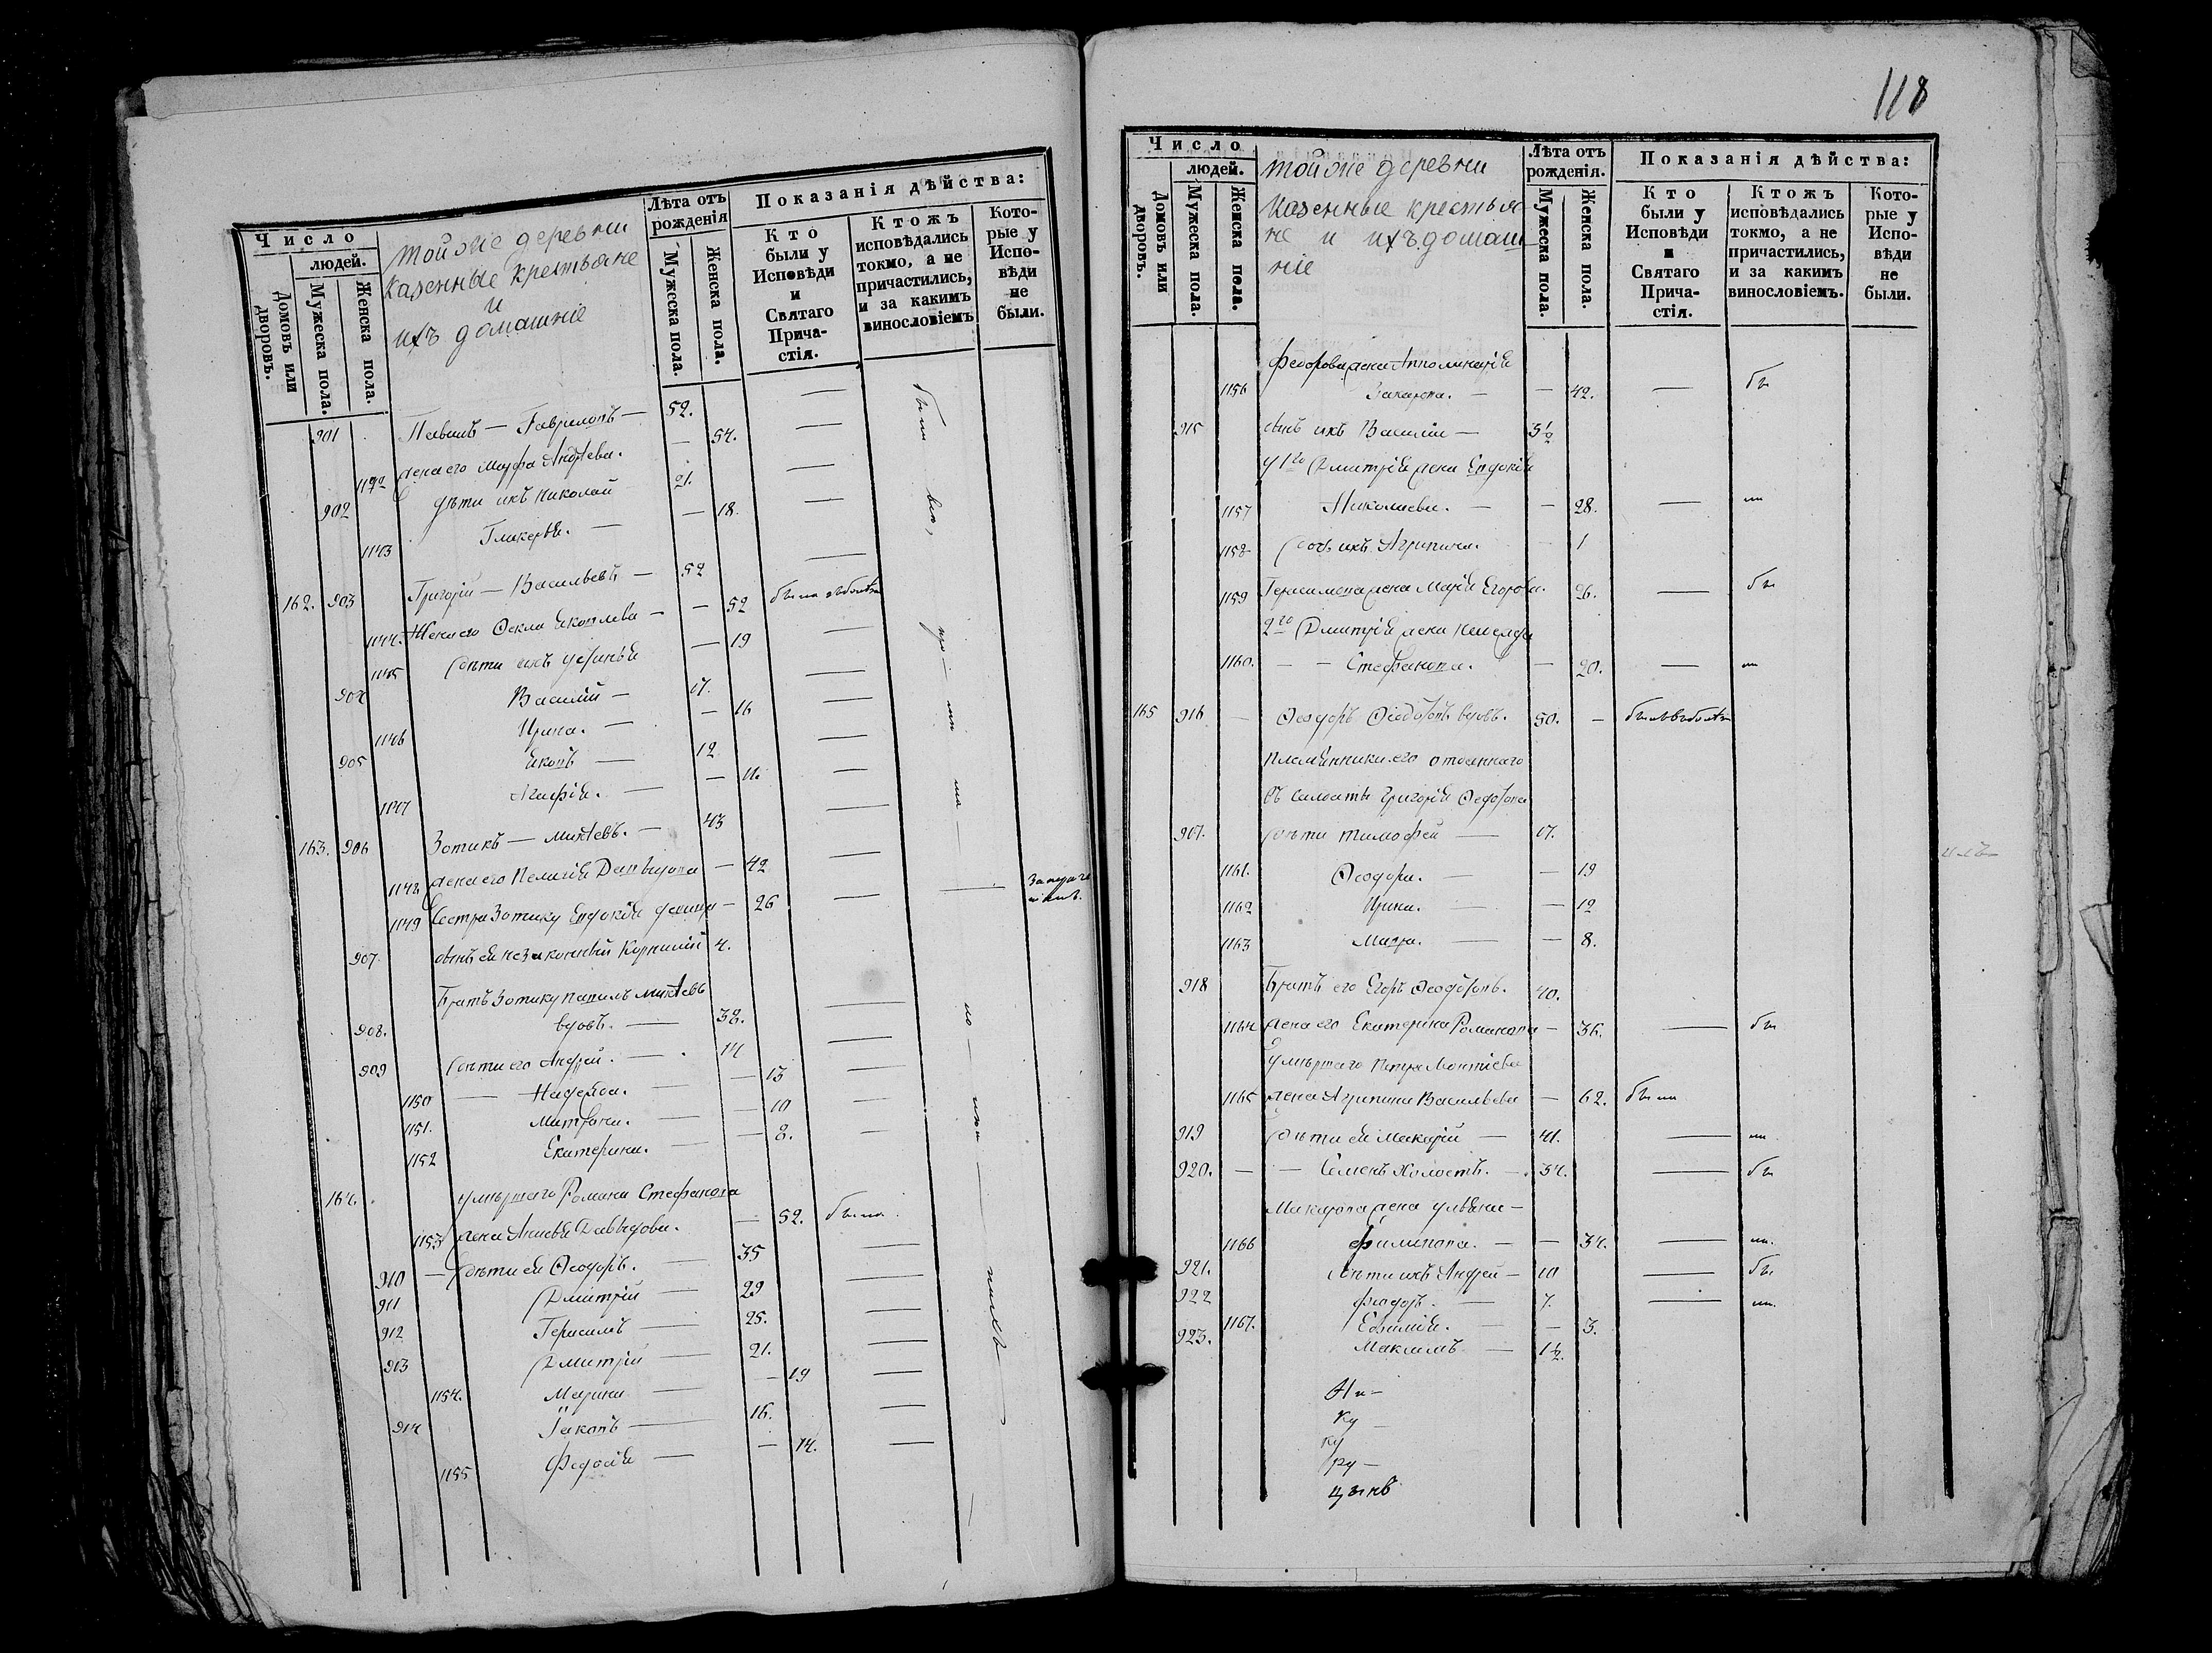 Число
людей.
Домовъ или дворовъ.
Мужеска пола.
Женска пола.
Тойже деревни
Казенные крестьяне
и
ихъ домашніе
Лѣта отъ рожденія
Мужеска пола.
Женска пола.
Показанія дѣйства:
Кто были у Исповѣди и Святаго Прича-стія.
Ктожъ исповѣдались токмо, а не причастились, и за какимъ винословіемъ
Кото-рые у Испо-вѣди не были.
901 Павелъ — Гавриловъ — 52.
1142 жена его Марфа Андреева. — 54.
902 дѣти ихъ Николай 21.
1143 Гликерья. — — 18.
162. 903 Григорій — Васильевъ — 52
1144. Жена его Ѳекла Яковлева — — 52
1145 дѣти ихъ Устинья — 19
904 Василій — 17.
1146 Ирина. — — 16
905 Яковъ — 12
1147 Агафія. — — 11.
163. 906 Зотикъ — Михѣевъ. — 43
1148 жена его Пелагія Давыдова — 42
1149 Сестра Зотику Евдокія — 26
907. сынъ ея незаконный Корнилій 4.
Братъ Зотику Михѣевъ
908. вдовъ. — 38.
909 дѣти его Андрей. — 14
1150 — Надежда. — — 13
1151. Матрона. — — 10
1152 Екатерина. — — 8.
164. умершаго Романа Стефанова
1153 жена Давыдова. — 52. была
910 — дѣти ея Ѳеодоръ. — 35
911 Дмитрій — 29
912 Герасимъ — 25.
913 Дмитрій — 21.
1154. Марина — — 19
914 Іаковъ — 16.
1155 Федосія — — 14.
118
Число
людей.
Домовъ или дворовъ.
Мужеска пола.
Женска пола.
Тойже деревни
Казенные крестья
не и ихъ домаш
ніе
Лѣта отъ рожденія.
Мужеска пола.
Женска пола.
Показанія дѣйства:
Кто были у Исповѣди и Святаго Прича-стія.
Ктожъ исповѣдались токмо, а не причастились, и за какимъ винословіемъ.
Кото-рые у Испо-вѣди не были.
Феодорова жена Апполинарія
1156 Захарова. — — 42. — бы
915 сынъ ихъ Василій — 3½
у 1го Дмитрія жена Евдокія
1157 Николаева. — — 28. — ли
1158 дочь ихъ Агрипина. — 1
1159 Герасимова жена Марія Егорова. 26. — бы
2го Дмитрія жена
1160. — — Стефанова. — — 20. — ли
165 916 — Ѳеодоръ Ѳедотовъ вдовъ. 50. —
племянники его отданнаго
въ солдаты Григорія Ѳедотова
907. дѣти Тимофей — 17.
1161. Ѳеодора. — — 19
1162 Ирина. — — 12
1163 Мавра. — — 8.
918 Братъ его Егоръ Ѳеодотовъ. 40.
1164 жена его Екатерина Романова — 36. — бы
умершаго Петра
1165 жена Агрипина Васильева — 62. была
919 дѣти ея Макарій — 41. — ли
920. — — Семенъ Холостъ. — 34. — бы
Макарова жена Ульяна —
1166 Филипова. — — 34. — ли.
921. дѣти ихъ Андрей — 10 — бы
922 Федоръ. — 7. — ли.
1167. Евфимія. — — 3.
923. Максимъ — 1½.
Ни —
ку —
ку
ру —
цынъ